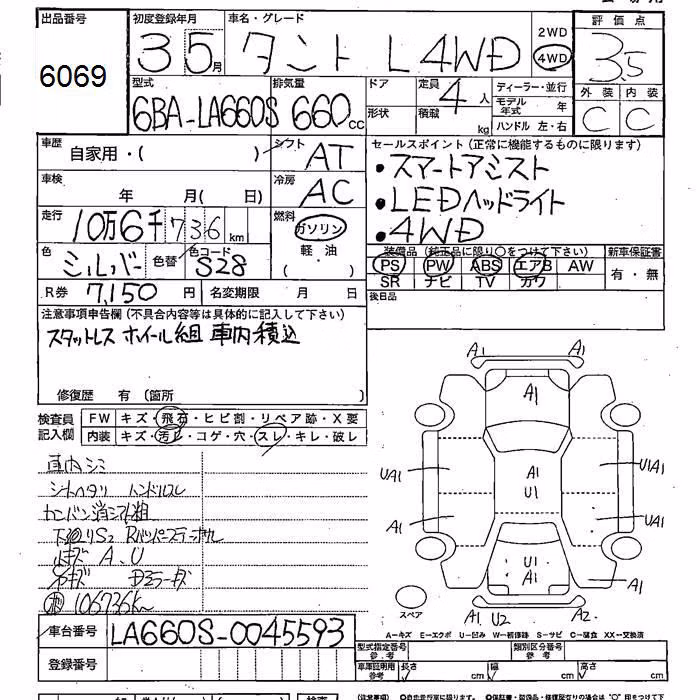 出品番号 初度登録年月 車名・グレード 評価点
6069 3 5月 タント L 4WD 2WD 4WD 3.5
型式 排気量 ドア 定員 ディーラー・並行 外装 内装
6BA-LA660S 660cc 形状 積載 4人 kg モデル年式 年 ハンドル 左・右 C C
車歴 自家用・( ) シフト AT セールスポイント(正常に機能するものに限ります)
・スマートアシスト
車検 年 月( 日) 冷房 AC ・LEDヘッドライト
走行 10万6千736km 燃料 ガソリン ・4WD
軽・油 ( ) 装備品(純正品に限り○をつけて下さい) 新車保証書
色 シルバー 色替 色コード S28 PS PW ABS エアB AW 有・無
SR ナビ TV カワ
R券 7,150円 名変期限 月 日 後日品
注意事項申告欄(不具合内容等は具体的に記入して下さい)
スタットレス ホイール組 車内積込
修復歴 有(箇所 )
検査員記入欄 FW キズ・飛石・ヒビ割・リペア跡・X要
内装 キズ・汚レ・コゲ・穴・スレ・キレ・破レ
車内シミ
シートヘタリ ハンドルスレ
下廻りS2
A、U
106736km
A1 A1
A1
UA1 A1 U1 U1A1
A1 UA1
U1 A1
スペア A1 U2 A2
A-キズ E-エクボ U-凹み W-補修跡 S-サビ C-腐食 XX-交換済
車台番号 LA660S-0045593 型式指定番号 参考 類別区分番号 参考
登録番号 車庫証明用 参考 長さ cm 幅 cm 高さ cm